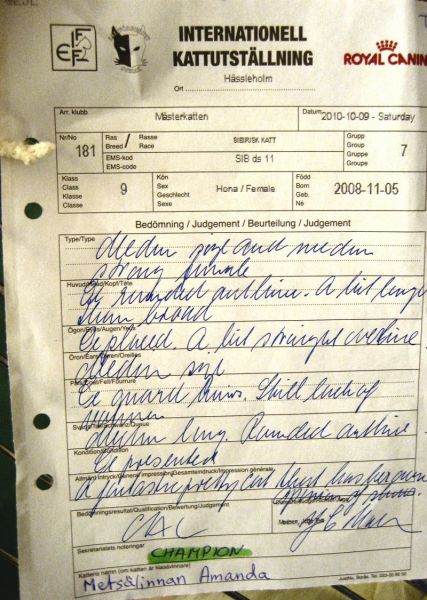 FIFe
INTERNATIONELL
KATTUTSTÄLLNING
ROYAL CANIN
Hässleholm
Ort
Arr. klubb Mästerkatten Datum 2010-10-09 - Saturday
Nr/No 181 Ras / Rasse Breed / Race SIBIRISK KATT Grupp Group Gruppe Groupe 7
EMS-kod EMS-code SIB ds 11
Klass Class Klasse Classe 9 Kön Sex Geschlecht Sexe Hona / Female Född Born Geb. Né 2008-11-05
Bedömning / Judgement / Beurteilung / Judgement
Type/Type
Medium size and medium
strong female
Huvud/Head/Kopf/Tête
Ex rounded outline. A bit longer
than broad
Ögon/Eyes/Augen/Yeux
Ex placed. A bit straight overline
Öron/Ears/Ohren/Oreilles
Medium size
Päls/Coat/Fell/Fourrure
Ex guard hairs. Still lack of
Svans/Tail/Schwanz/Queue
Medium long. Rounded outline
Kondition/Condition
Ex presented
Allmänt intryck/General impression/Gesamteindruck/Impression générale
A fantastic pretty cat that has her own
opinion of shows.
Bedömningsresultat/Qualification/Bewertung/Judgement
CAC
Sekretariatets noteringar
CHAMPION
Kattens namn (om katten är klassvinnare)
Metsälinnan Amanda